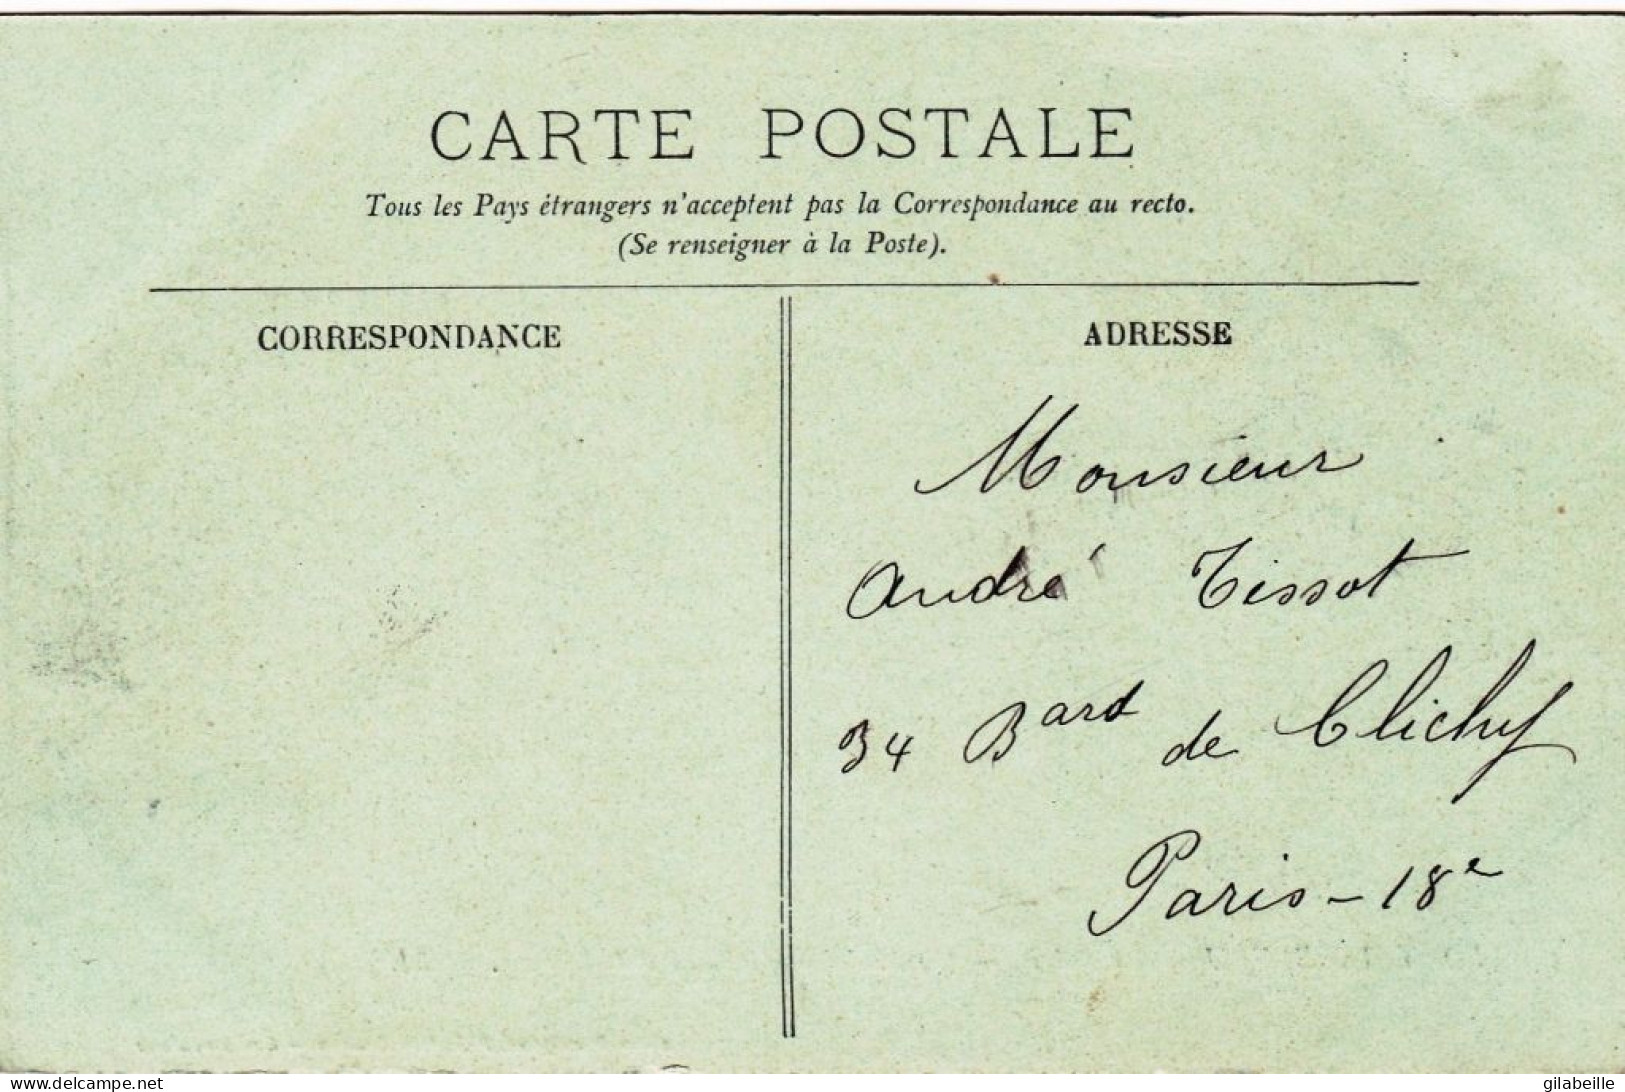 CARTE POSTALE
Tous les Pays étrangers n'acceptent pas la Correspondance au recto.
(Se renseigner à la Poste).
CORRESPONDANCE
ADRESSE
Monsieur
André Tissot
34 Bard de Clichy
Paris - 18e
www.delcampe.net
gilabeille